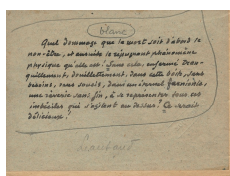 blanc
Quel dommage que la mort soit d'abord le
non-être, et ensuite le répugnant phénomène
physique qu'elle est ! Sans cela, enfermé tran-
quillement, douillettement, dans cette boîte, sans
besoins, sans soucis, dans un éternel farniente,
une rêverie sans fin, à se représenter tous ces
imbéciles qui s'agitent au dessus ! Ce serait
délicieux !
Léautaud